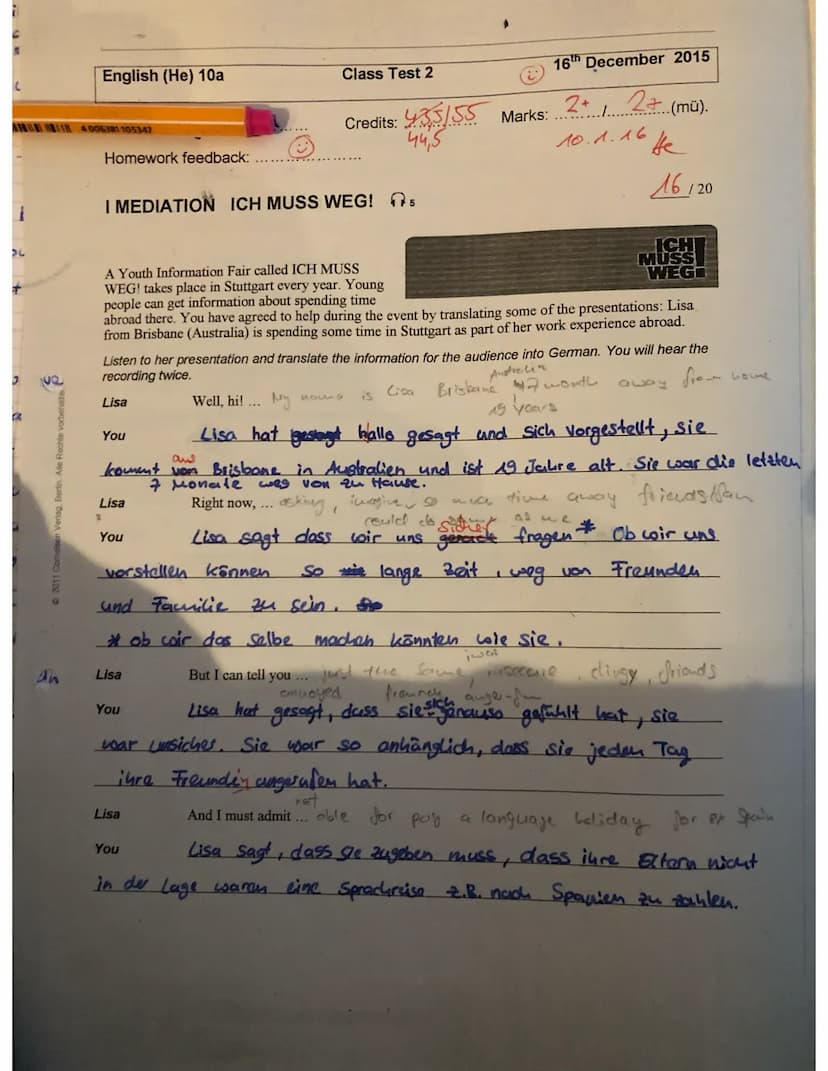 English (He) 10a Class Test 2 16th December 2015
4 006381 105347
Credits: 43,5/55 Marks: 2+ / 2+ (mü).
44,5 10.1.16 He
Homework feedback:
16 / 20
I MEDIATION ICH MUSS WEG! 5
ICH
MUSS
WEG!
A Youth Information Fair called ICH MUSS
WEG! takes place in Stuttgart every year. Young
people can get information about spending time
abroad there. You have agreed to help during the event by translating some of the presentations: Lisa
from Brisbane (Australia) is spending some time in Stuttgart as part of her work experience abroad.
Listen to her presentation and translate the information for the audience into German. You will hear the
recording twice.
Australien
Lisa Well, hi! ... My name is Lisa Brisbane 7 month away from home
19 years
You Lisa hat gesagt hallo gesagt und sich vorgestellt, sie
aus
kommt von Brisbane in Australien und ist 19 Jahre alt. Sie war die letzten
7 Monate weg von zu Hause.
Lisa Right now, ... asking, imagine so much time away friends/fam
could do as me
sicher
You Lisa sagt dass wir uns gerade fragen * Ob wir uns
vorstellen können so lange Zeit, weg von Freunden
und Familie zu sein.
* ob wir das selbe machen könnten wie sie.
Lisa But I can tell you ... just the same, insecure, clingy, friends
sich
You Lisa hat gesagt, dass sie genauso gefühlt hat, sie
war unsicher. Sie war so anhänglich, dass sie jeden Tag
ihre Freundin angerufen hat.
not
Lisa And I must admit ... able for pay a language holiday for ex Spain
You Lisa sagt, dass sie zugeben muss, dass ihre Eltern nicht
in der Lage waren eine Sprachreise z.B. nach Spanien zu zahlen.
© 2011 Cornelsen Verlag, Berlin. Alle Rechte vorbehalten.